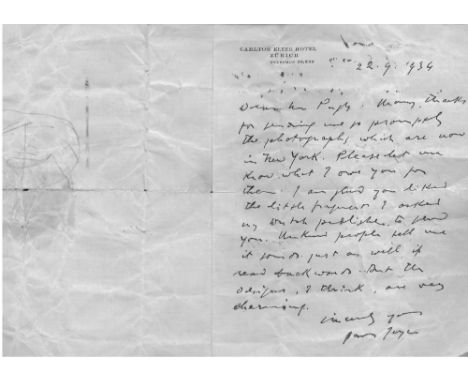 CARLTON ELITE HOTEL
ZÜRICH
22.9.1934
Dear Mr Pugh: Many thanks
for sending me so promptly
the photographs which are now
in New York. Please let me
know what I owe you for
them. I am glad you liked
the little fragment I asked
my Dutch publisher to send
you. Unkind people tell me
it sounds just as well if
read backwards. But the
designs, I think, are very
charming.
Sincerely yours
James Joyce